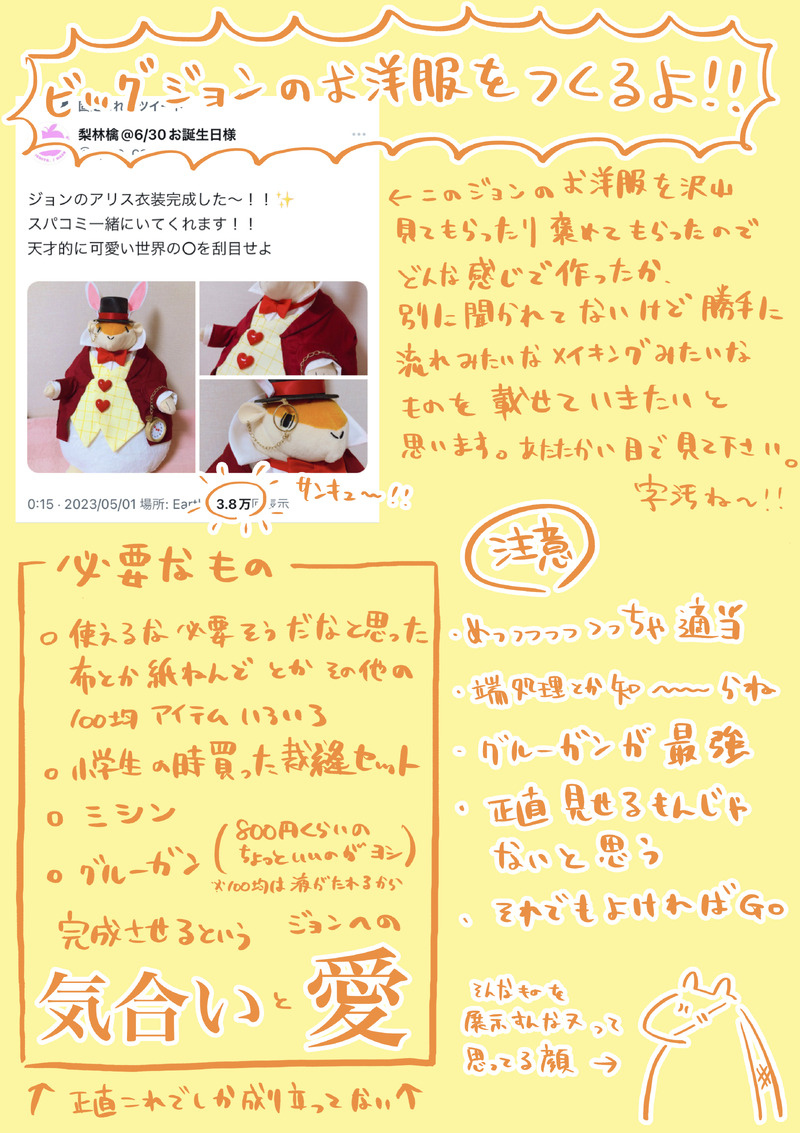 ビッグジョンのお洋服をつくるよ!!
梨林檎@6/30お誕生日様
ジョンのアリス衣装完成した〜！！✨
スパコミ一緒にいてくれます！！
天才的に可愛い世界の〇を刮目せよ
0:15 · 2023/05/01 場所: Eart
3.8万 表示
サンキュ〜!!
←このジョンのお洋服を沢山
見てもらったり褒めてもらったので
どんな感じで作ったか、
別に聞かれてないけど勝手に
流れみたいなメイキングみたいな
ものを載せていきたいと
思います。あたたかい目で見て下さい。
字汚ね〜!!
必要なもの
○使えるな必要そうだなと思った
布とか紙ねんどとかその他の
100均アイテムいろいろ
○小学生の時買った裁縫セット
○ミシン
○グルーガン
(800円くらいの
ちょっといいのがヨシ)
※100均は液がたれるから
完成させるという ジョンへの
気合いと愛
↑正直これでしか成り立ってない↑
注意
・めっつつつつつっちゃ適当
・端処理とか知〜〜らね
・グルーガンが最強
・正直見せるもんじゃ
ないと思う
・それでもよければGo
そんなものを
展示すんなヌって
思ってる顔→